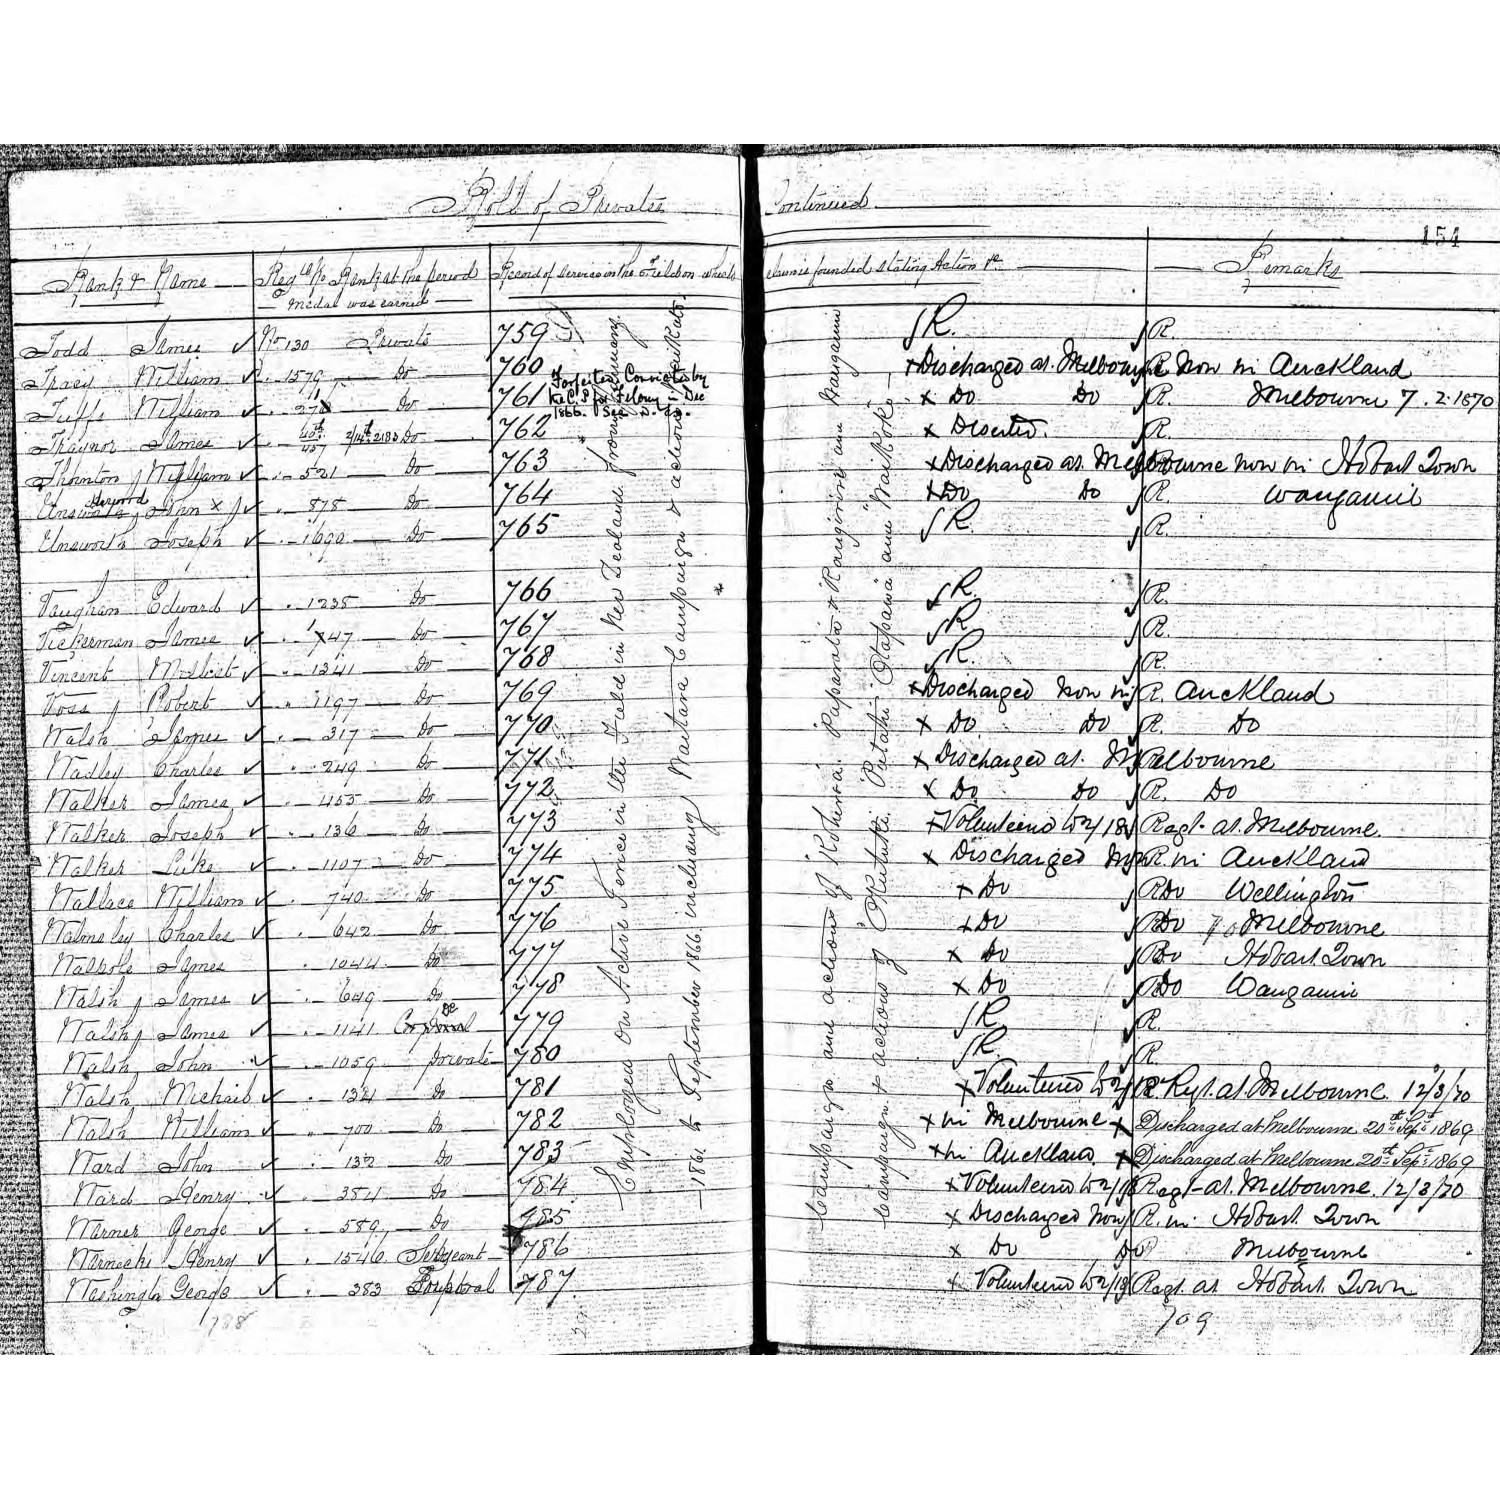 Roll of Privates Continued
154
Rank & Name Regtl No Rank at the period Medal was earned Record of Services in the Field on which claim is founded stating Action &c Remarks
Todd James No 130 Private 759 R. R.
Tracy William 1579 Do 760 Discharged at Melbourne R. Now in Auckland
Tuffs William 27 Do 761 Forfeited Convicted by the C.P. for Felony in Dec 1866. Do Do R. Melbourne 7.2.1870
Traynor James Do 762 Deserted. R.
Thornton William 521 Do 763 Discharged at Melbourne now in Hobart Town
Unsworth John x 878 Do 764 Do Do R. Wanganui
Unsworth Joseph 1690 Do 765 R. R.
Vaughan Edward 1235 Do 766 R. R.
Vickerman James 747 Do 767 R. R.
Vincent 1341 Do 768 R. R.
Voss Robert 1197 Do 769 Discharged Now in R. Auckland
Walsh James 317 Do 770 Do Do R. Do
Wadley Charles 249 Do 771 Discharged at Melbourne
Walker James 455 Do 772 Do Do R. Do
Walker Joseph 136 Do 773 Volunteered to 2/18 Regt. at Melbourne.
Walker Luke 1107 Do 774 Discharged Now R. in Auckland
Wallace William 740 Do 775 Do R Do Wellington
Walmsley Charles 642 Do 776 Do R Do Melbourne
Walpole James 1044 Do 777 Do R Do Hobart Town
Walsh James 649 Do 778 Do R Do Wanganui
Walsh James 1141 Corporal 779 R R.
Walsh John 1059 Private 780 R. R
Walsh Michael 1321 Do 781 Volunteered to 2/18 Regt. at Melbourne. 12/3/70
Walsh William 700 Do 782 in Melbourne Discharged at Melbourne 20th Sept 1869
Ward John 132 Do 783 in Auckland. Discharged at Melbourne 20th Sept 1869
Ward Henry 384 Do 784 Volunteered to 2/18 Regt at Melbourne. 12/3/70
Warner George 589 Do 785 Discharged Now R. in Hobart Town
Warwick Henry 1546 Sergeant 786 Do Do R Melbourne
Washington George 383 Corporal 787 Volunteered to 2/18 Regt at Hobart Town
Employed on Active Service in the Field in New Zealand from January 1861 to September 1866 including Waitara Campaign & actions Waikato.
Campaign and actions of Kohiroa. Paparata & Rangiriri and Wanganui
Campaign & actions of Putahi Otapawa and Waikoko
788
709